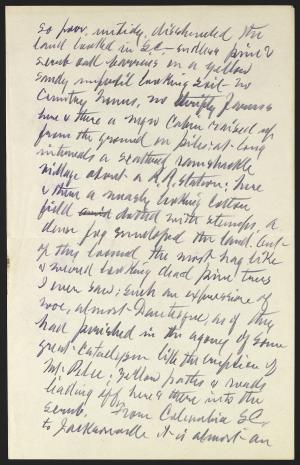 so poor, untidy, dishevelled the
land looked in S.C. – endless pine &
scrub oak barrens on a yellow
sandy unfruitful looking soil – no
Country homes, no thrifty farms
here & there a negro Cabin raised up
from the ground on piles; at long
intervals a scattered ramshackle
village about a R.R. station; here
& there a mushy looking cotton
field dotted with stumps, a
dense fog enveloped the land, out
of this loomed the most hag like
& weird looking dead pine trees
I ever saw; such an expression of
woe, almost Dantesque, as if they
had perished in the agony of some
great cataclysm like the eruption of
Mt. Pelee. Yellow paths & roads
leading off here & there into the
scrub. From Columbia S.C.
to Jacksonville it is almost an